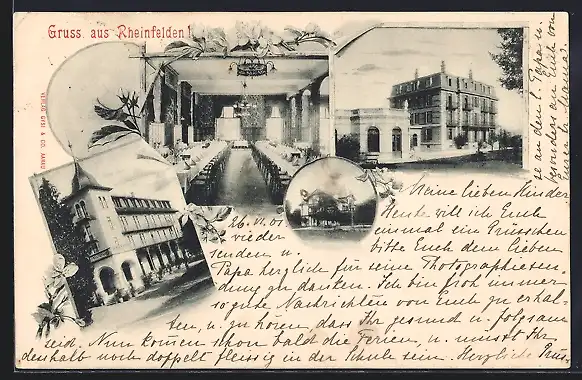 Gruss aus Rheinfelden!
VERLAG GUSI & CO. AARAU
26. VI. 01
Meine lieben Kinder
Heute will ich Euch
wieder einmal ein Grüsschen
senden u. bitte Euch dem lieben
Papa herzlich für seine Photographiesen-
dung zu danken. Ich bin froh immer
so gute Nachrichten von Euch zu erhal-
ten, u. zu hören, dass Ihr gesund u. folgsam
seid. Nun kommen schon bald die Ferien, u. müsst Ihr
deshalb noch doppelt fleissig in der Schule sein. Herzliche Grüs-
se an den l. Papa u.
besonders an Euch von
Eurer l. Mama.